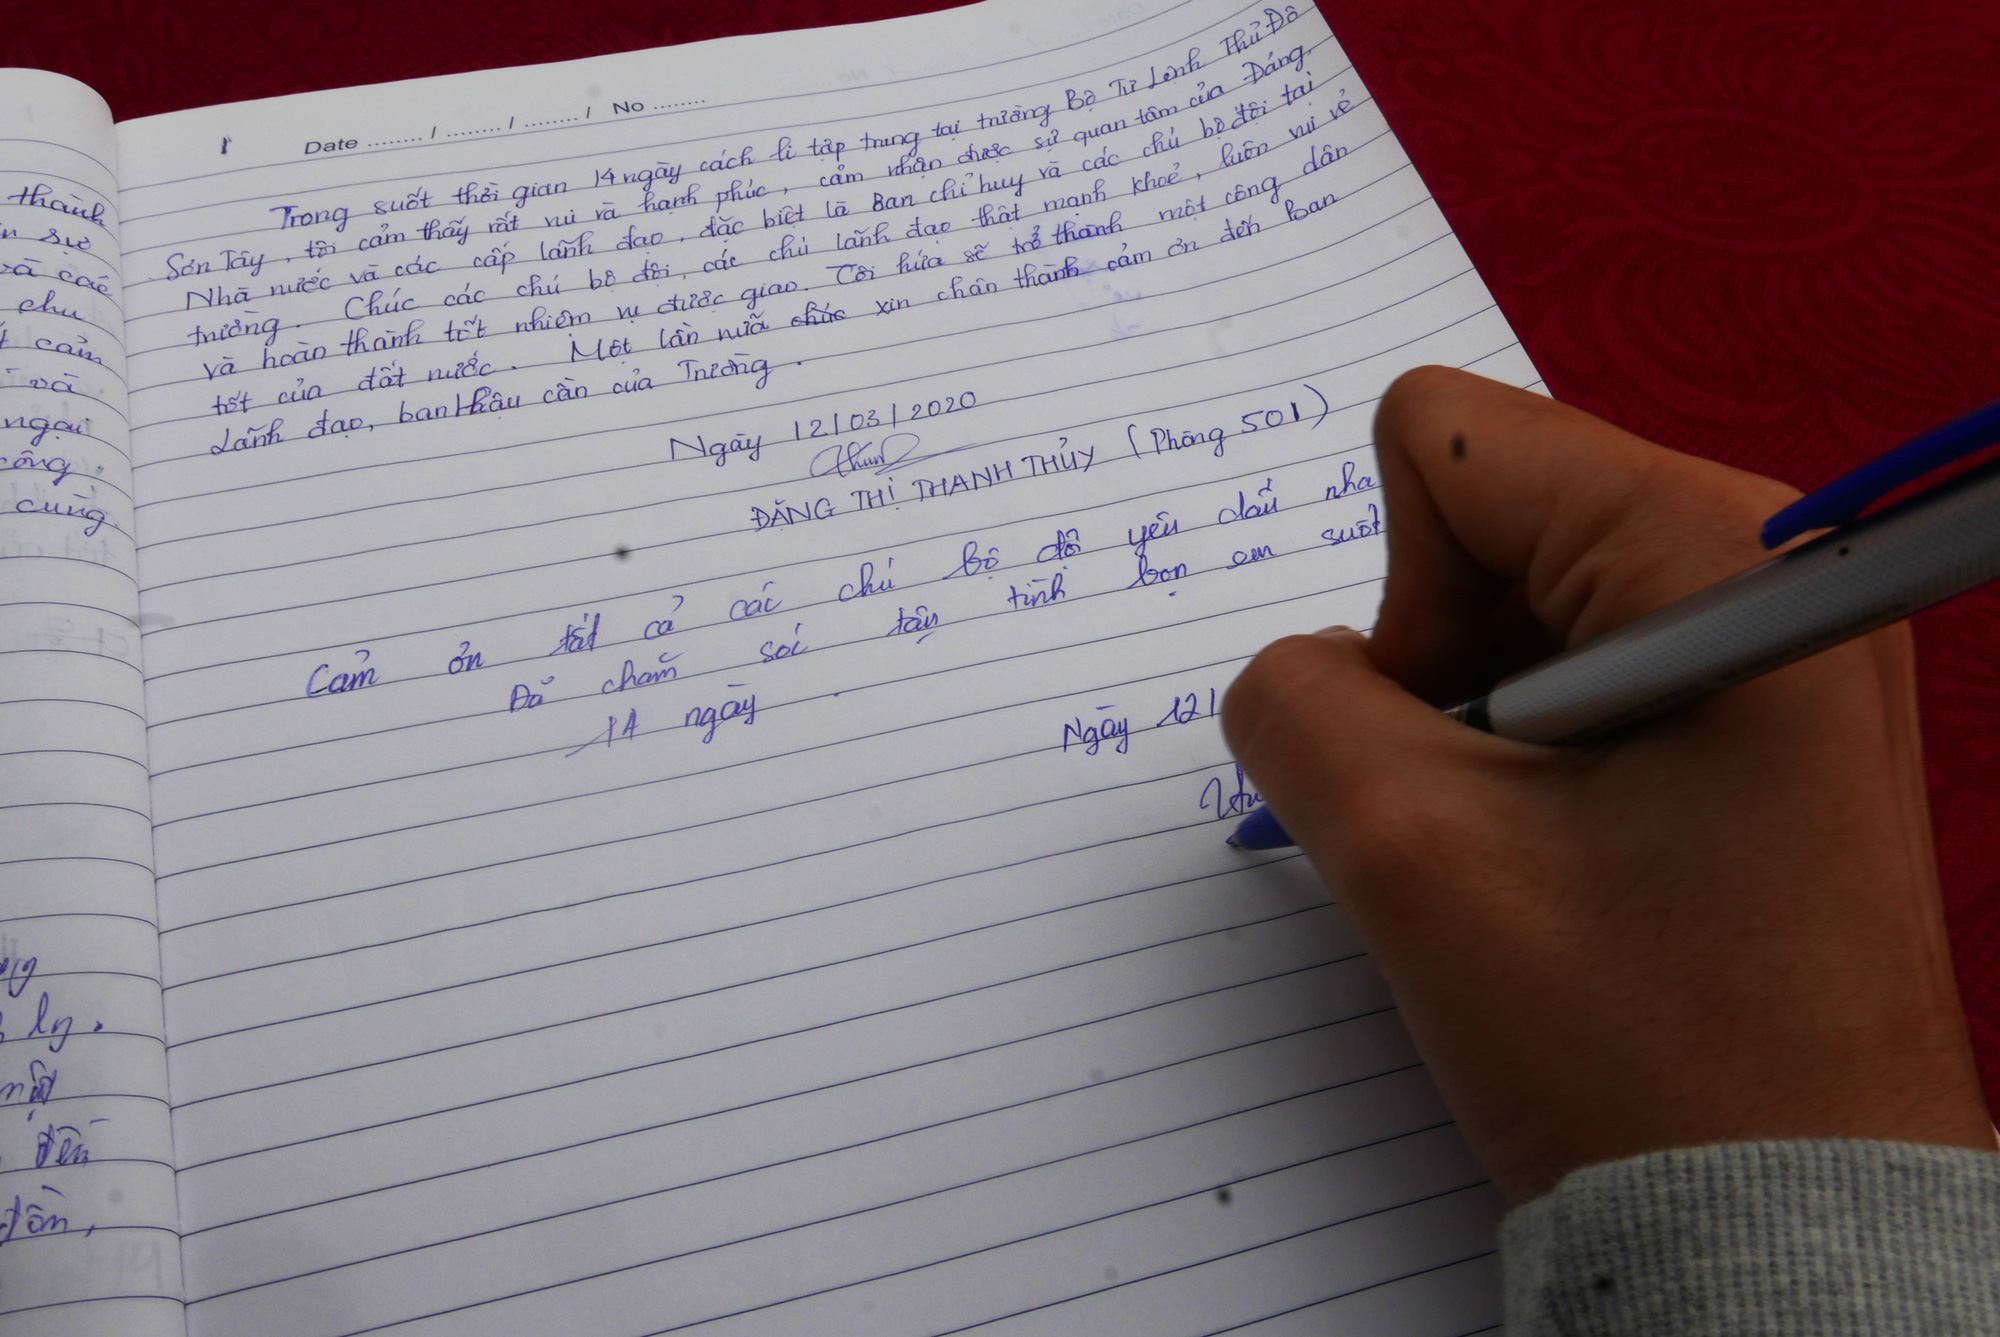 Date ........ / ........ / ........ / No ........
Trong suốt thời gian 14 ngày cách li tập trung tại trường Bộ Tư Lệnh Thủ Đô
Sơn Tây, tôi cảm thấy rất vui và hạnh phúc, cảm nhận được sự quan tâm của Đảng,
Nhà nước và các cấp lãnh đạo, đặc biệt là Ban chỉ huy và các chú bộ đội tại
trường. Chúc các chú bộ đội, các chú lãnh đạo thật mạnh khoẻ, luôn vui vẻ
và hoàn thành tốt nhiệm vụ được giao. Tôi hứa sẽ trở thành một công dân
tốt của đất nước. Một lần nữa chúc xin chân thành cảm ơn đến Ban
Lãnh đạo, ban Hậu cần của Trường.
Ngày 12/03/2020
ĐẶNG THỊ THANH THỦY (Phòng 501)
Cảm ơn tất cả các chú bộ đội yêu dấu nha
Đã chăm sóc tận tình bọn em suốt
14 ngày.
Ngày 12/
thành
sự
và các
chu
cảm
và
ngại
công.
cùng
ly.
một
đến
đồn,